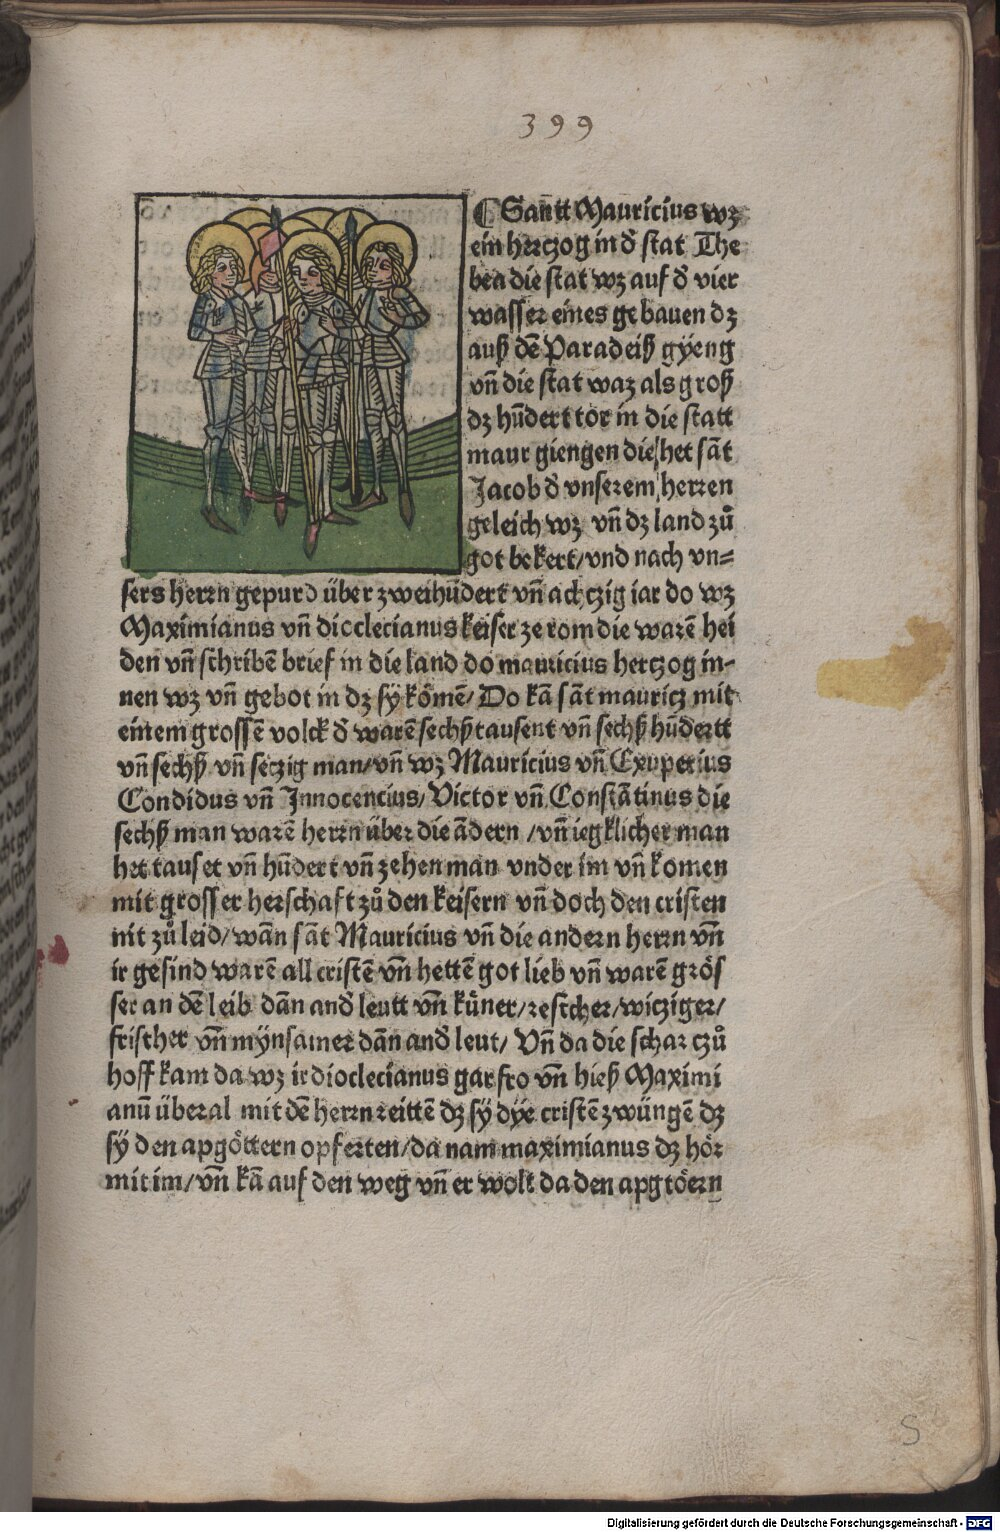 399
⁋ Santt Mauricius wz
ein hertzog in d̕ stat The
bea die stat wz auf d̕ vier
wasser eines gebauen dz
auß dē Paradeiß gÿeng
vn̄ die stat waz als groß
dz hūdert tor in die statt
maur giengen die het sāt
Jacob d̕ vnserem herren
geleich wz vn̄ dz land zů
got bekert/vnd nach vn=
sers herrn gepurd über zweihūdert vn̄ achczig iar do wz
Maximianus vn̄ dioclecianus keiser ze rom die warē hei
den vn̄ schribē brief in die land do mauricius hertzog in-
nen wz vn̄ gebot in dz sÿ kömē/Do kā sāt mauricz mit
einem grossē volck d̕ warē sechß tausent vn̄ sechß hūdertt
vn̄ sechß vn̄ seczig man/vn̄ wz Mauricius vn̄ Exuperius
Condidus vn̄ Innocencius/Victor vn̄ Constātinus die
sechß man warē herrn über die ādern /vn̄ iegklicher man
het tauset vn̄ hūdert vn̄ zehen man vnder im vn̄ komen
mit grosser herschaft zů den keisern vn̄ doch den cristen
nit zů leid/wān sāt Mauricius vn̄ die andern herrn vn̄
ir gesind warē all cristē vn̄ hettē got lieb vn̄ warē grös
ser an dē leib dān and̕ leutt vn̄ küner/rescher/wicziger/
frischer vn̄ mÿnsamer dān and̕ leut/ Vn̄ da die schar czů
hoff kam da wz ir dioclecianus gar fro vn̄ hieß Maximi
anū überal mit dē herrn reittē dz sÿ dÿe cristē zwüngē dz
sÿ den apgöttern opferten/da nam maximianus dz hör
mit im/vn̄ kā auf den weg vn̄ er wolt da den apgtöern
S
Digitalisierung gefördert durch die Deutsche Forschungsgemeinschaft - DFG